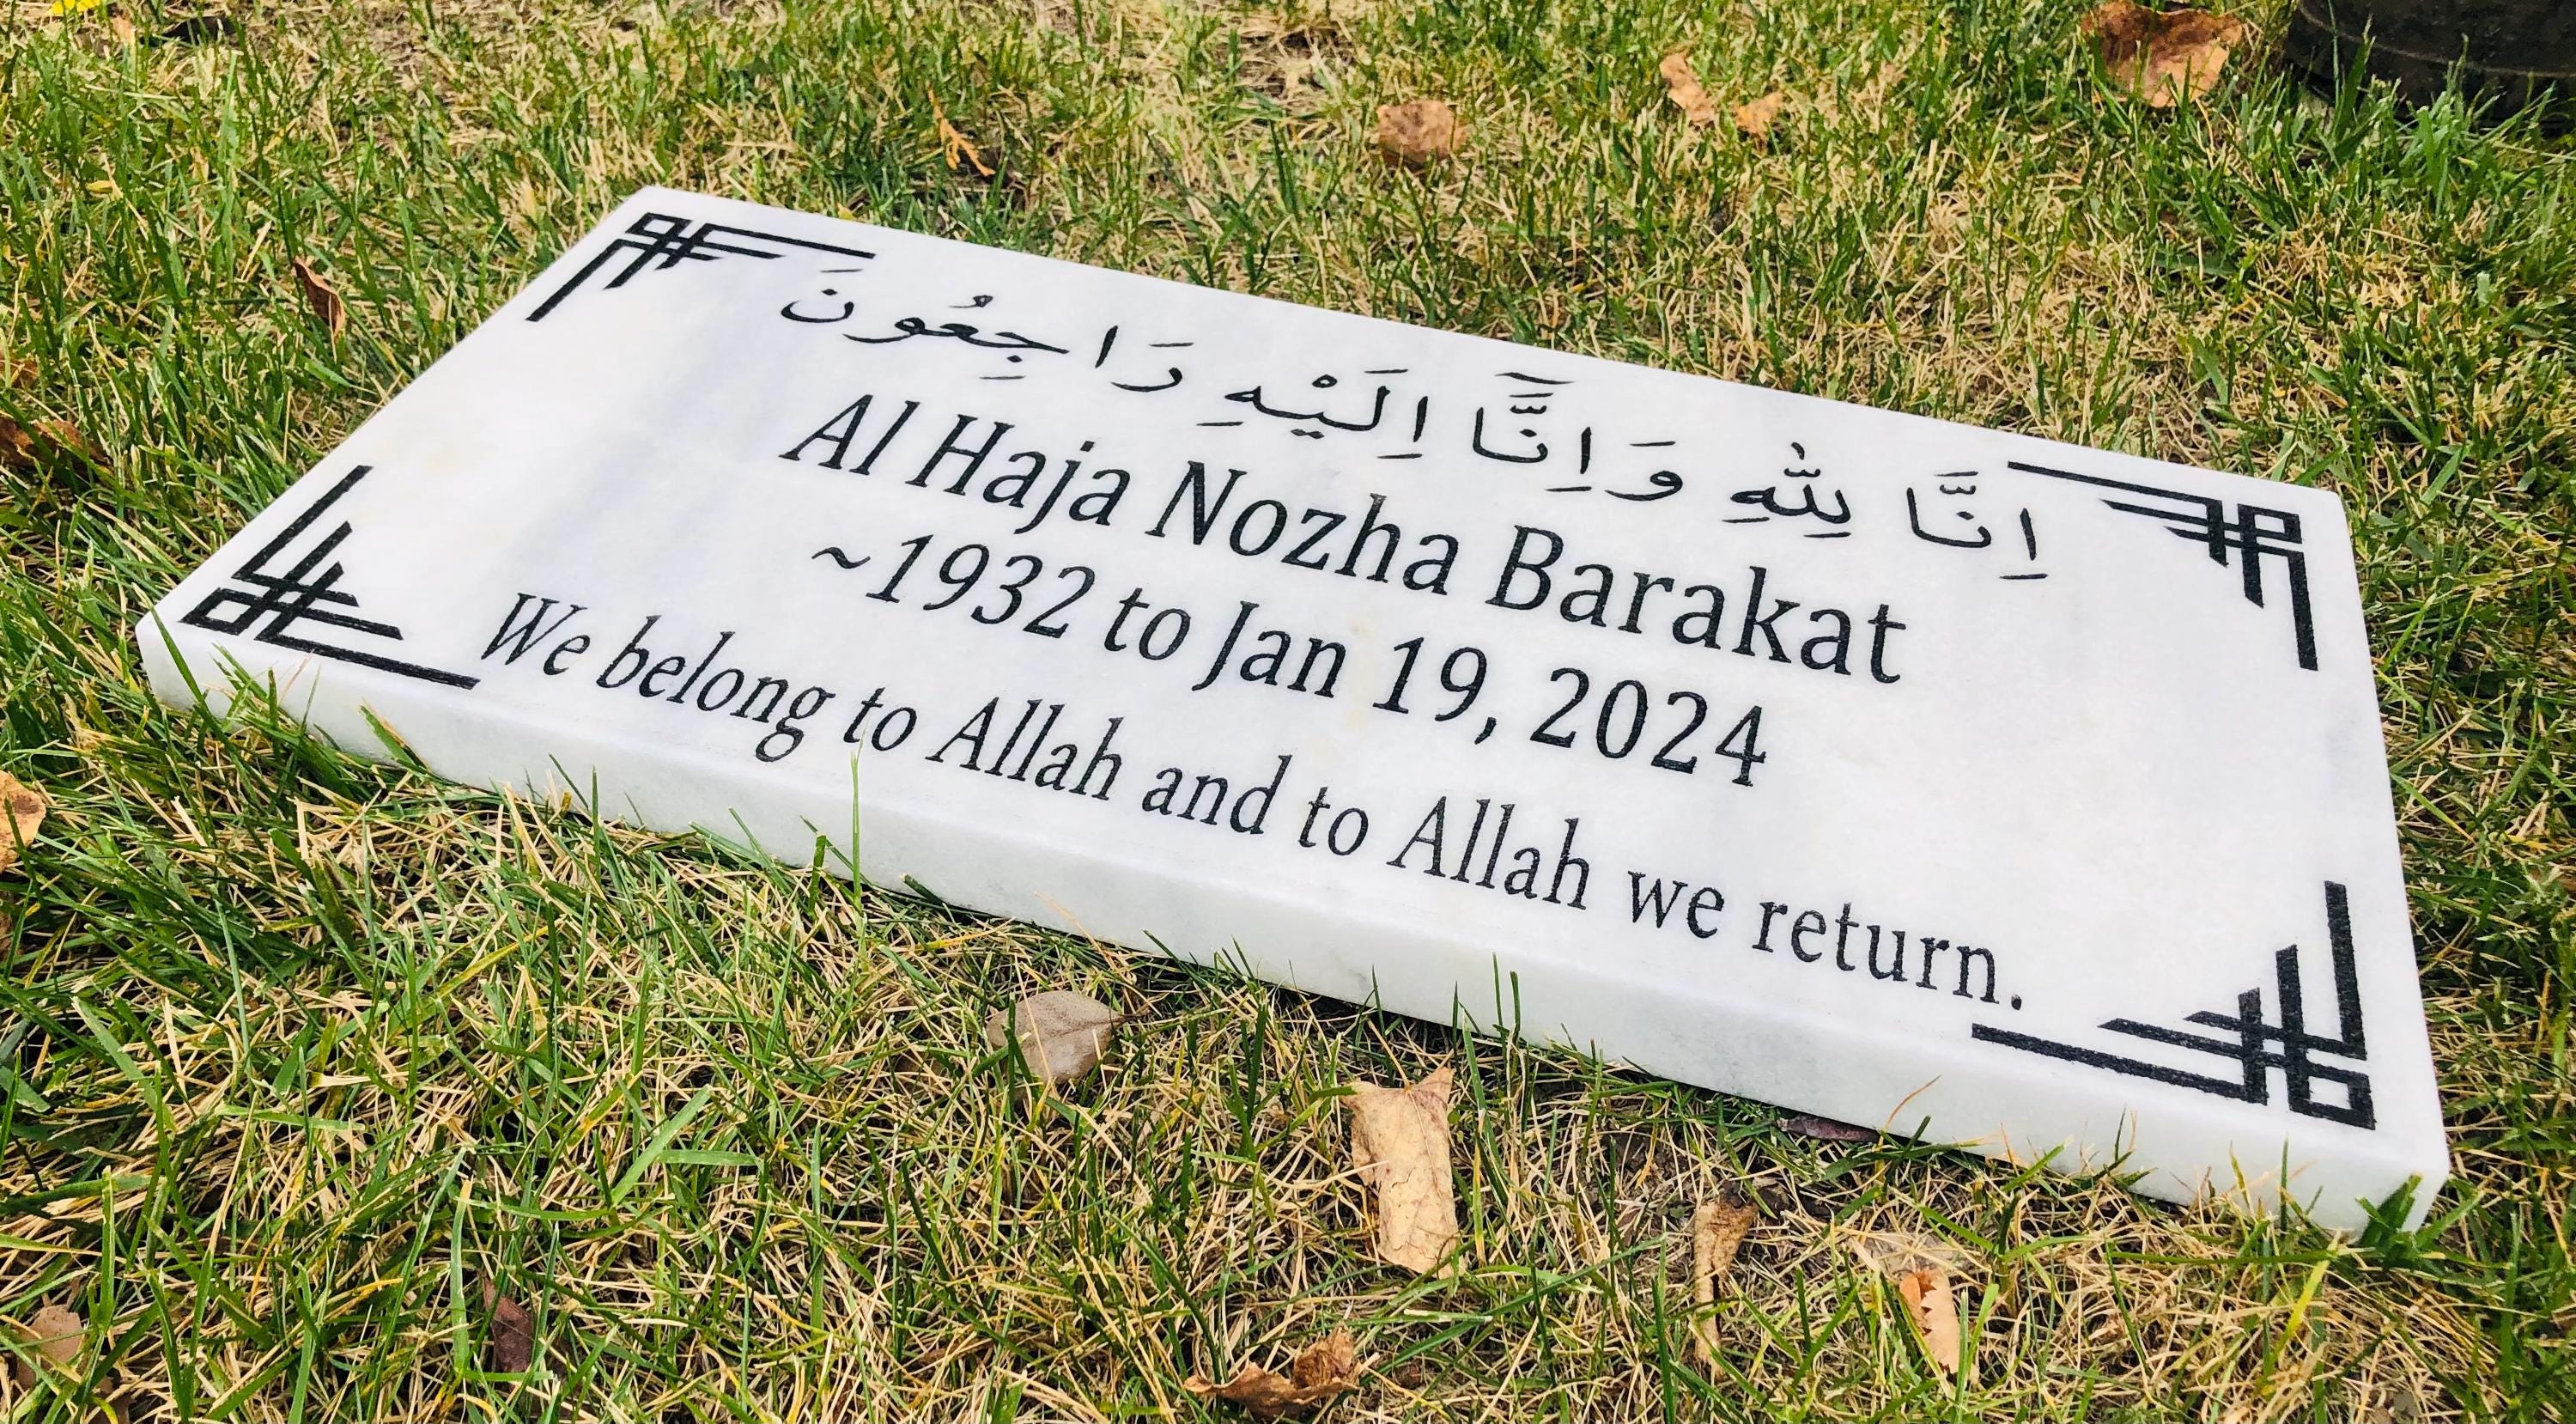 اِنَّا لِلّٰهِ وَاِنَّآ اِلَيْهِ رَاجِعُونَ
Al Haja Nozha Barakat
~1932 to Jan 19, 2024
We belong to Allah and to Allah we return.